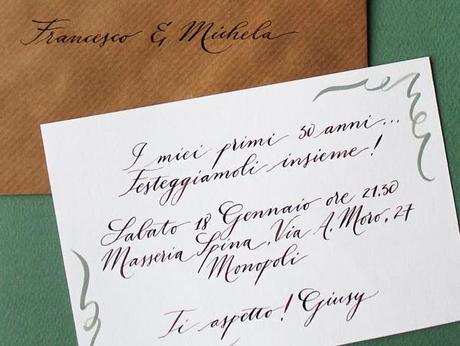 Francesco & Michela
I miei primi 30 anni...
Festeggiamoli insieme!
Sabato 18 Gennaio ore 21.30
Masseria Spina, Via A. Moro, 27
Monopoli
Ti aspetto! Giusy